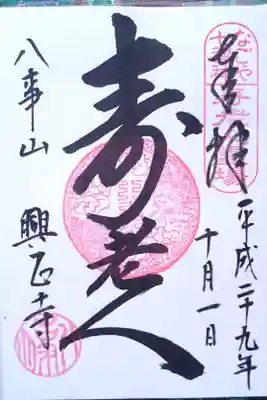 奉拝
平成二十九年
十月一日
寿老人
八事山
興正寺